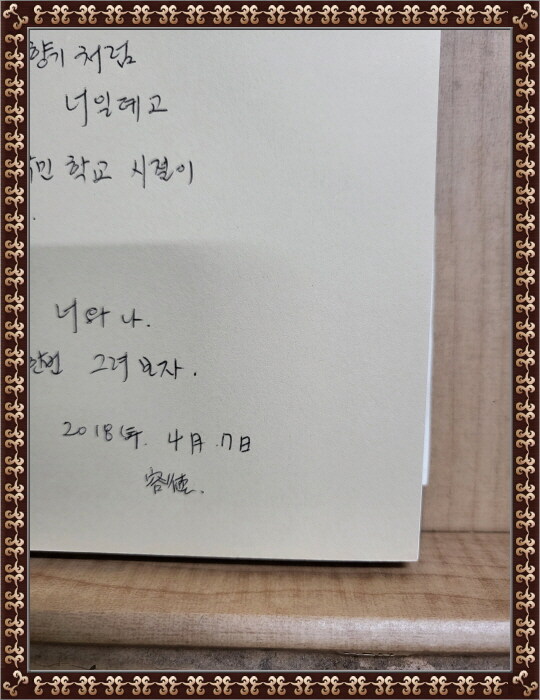 향기 처럼
너일테고
국민 학교 시절이
.
너와 나.
한번 그려 보자.
2018年. 4月. 7日
容德.